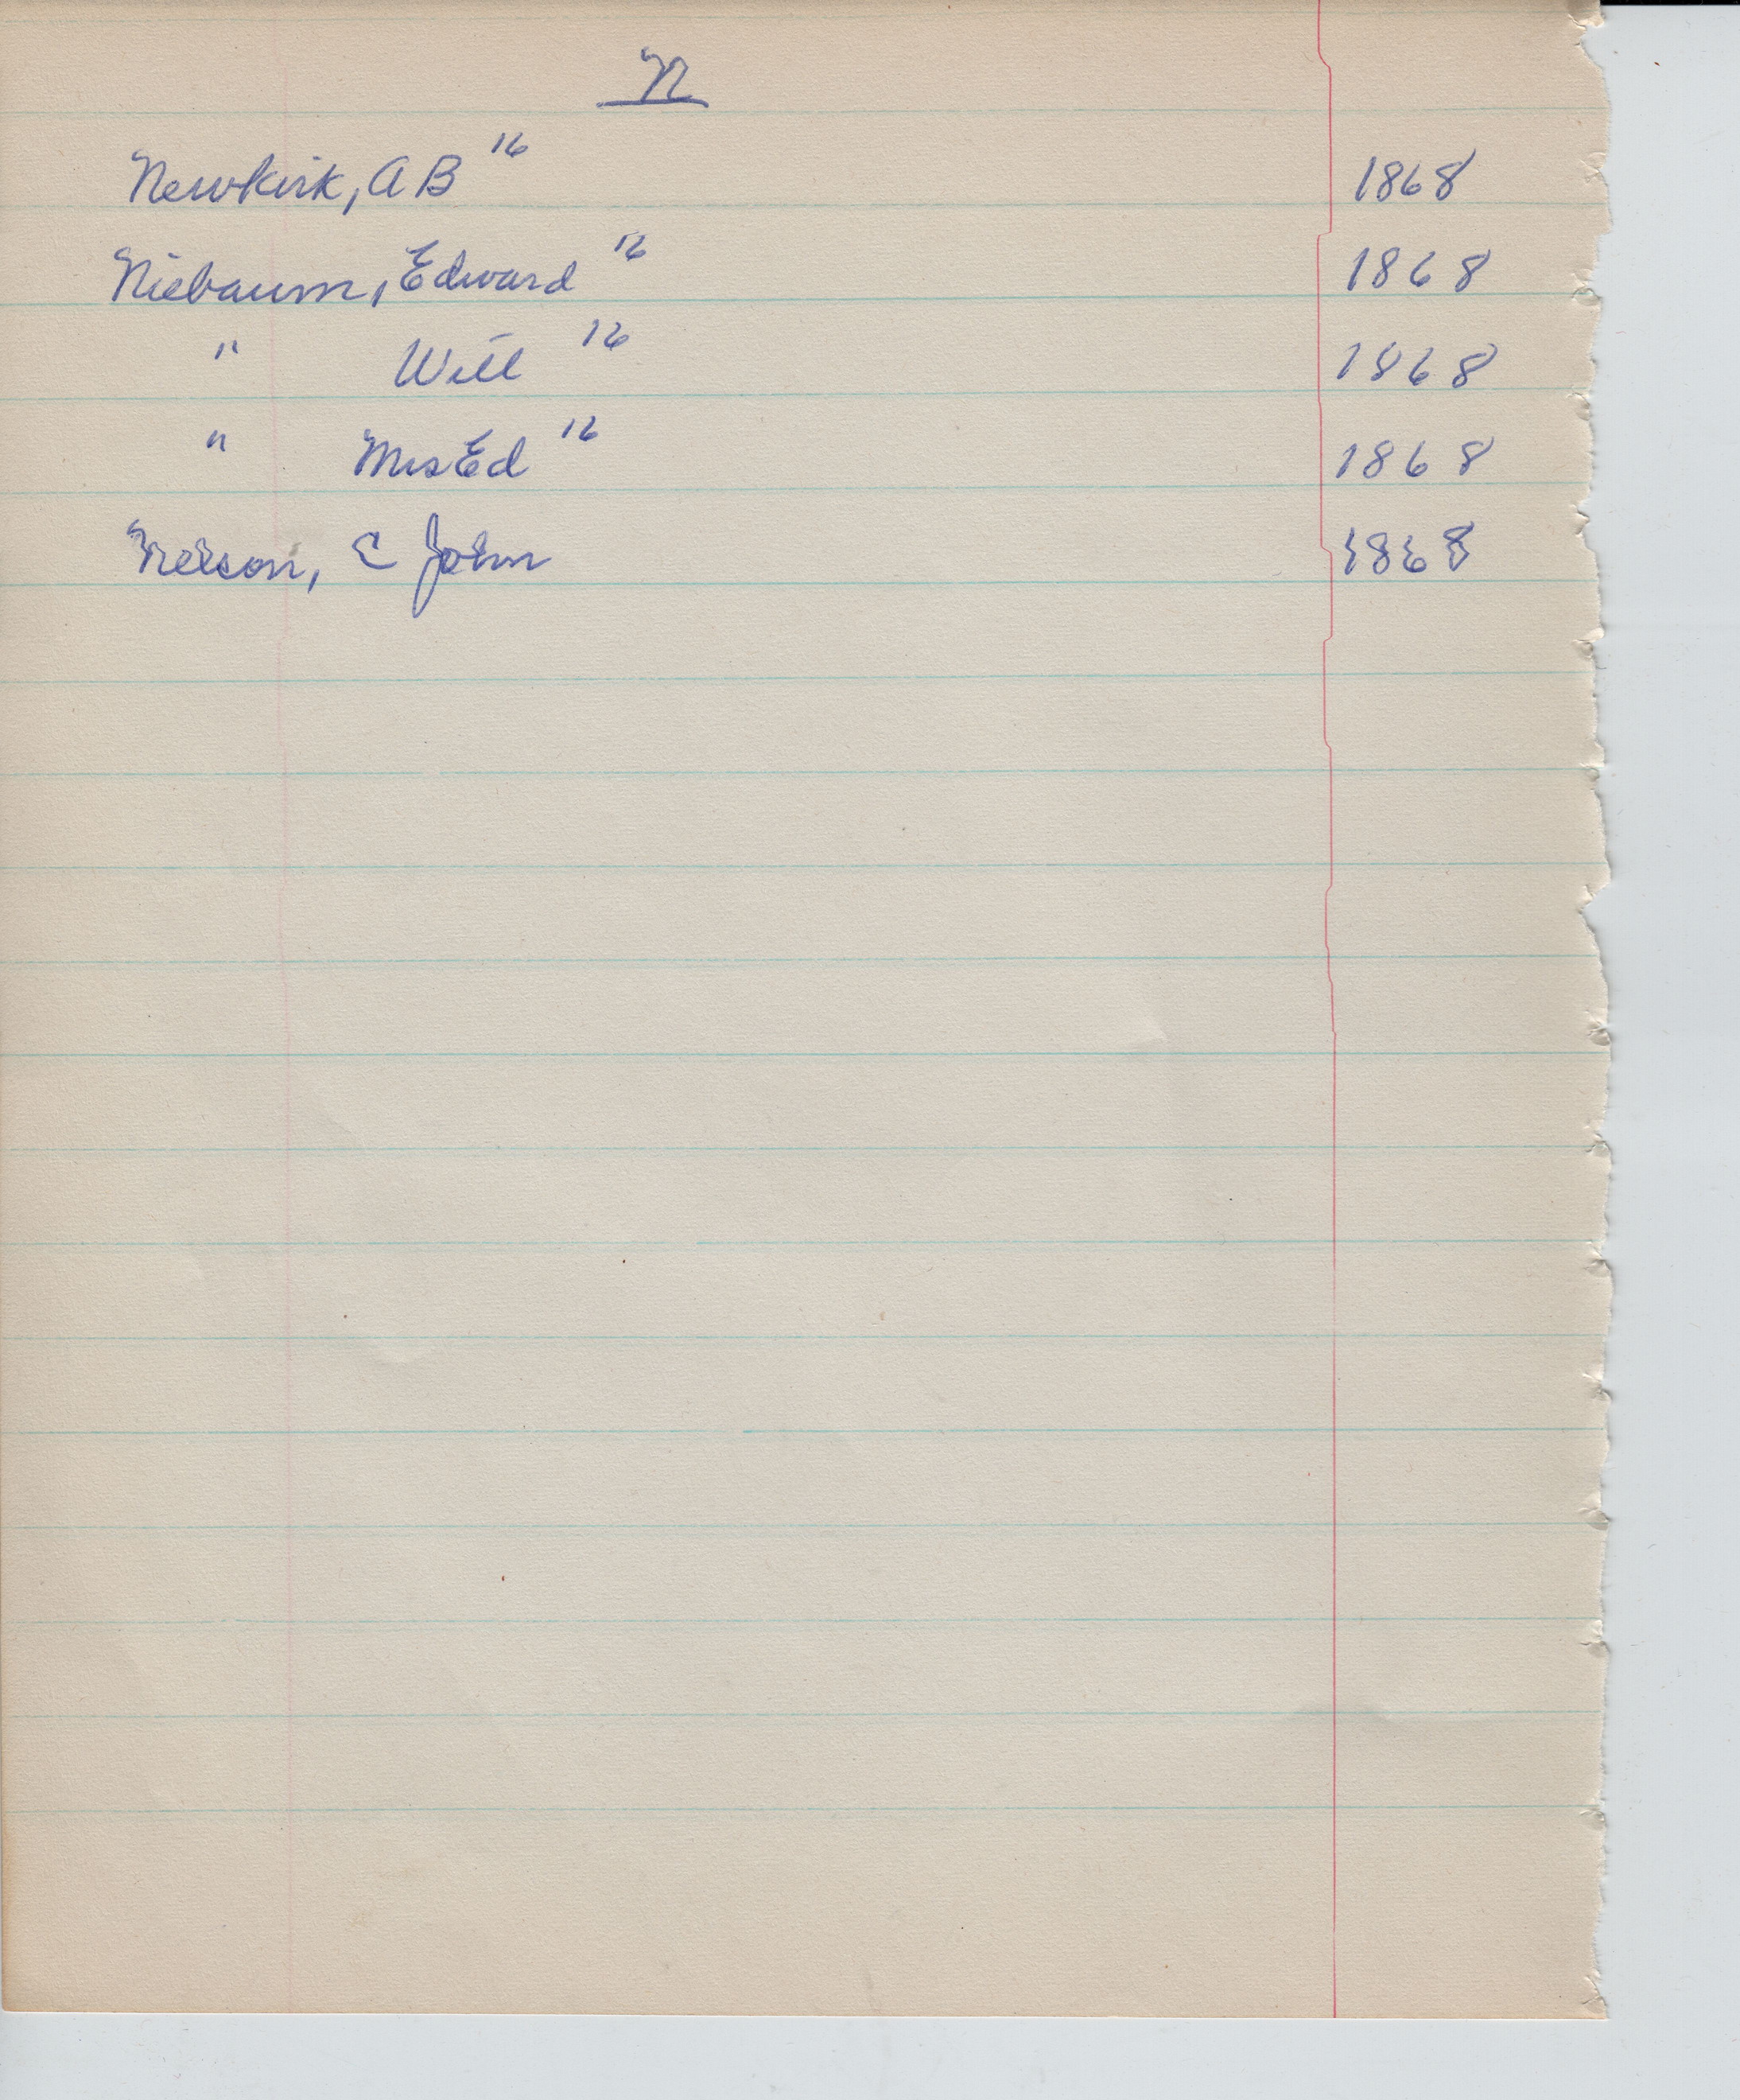 N
Newkirk, A B 16 1868
Niebaum, Edward 16 1868
" Will 16 1868
" Mrs Ed 16 1868
Nelson, C John 1868